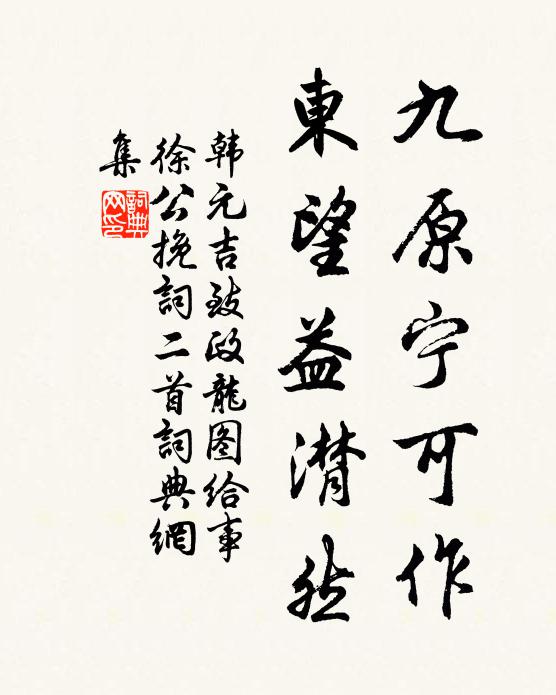 九原宁可作
東望益潸然
韩元吉致政龍图给事
徐公挽詞二首詞典網
集
詞典
网印